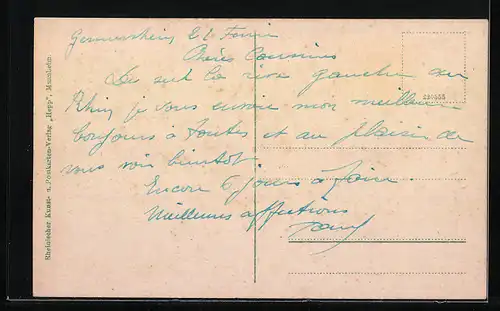 Germersheim
Chères Cousines
Des sur la rive gauche du
Rhin je vous envoie mon meilleur
bonjours à toutes et au plaisir de
vous voir bientot.
Encore 6 jours à faire.
Meilleures affections
Rheinischer Kunst- u. Postkarten-Verlag „Hepp", Mannheim.